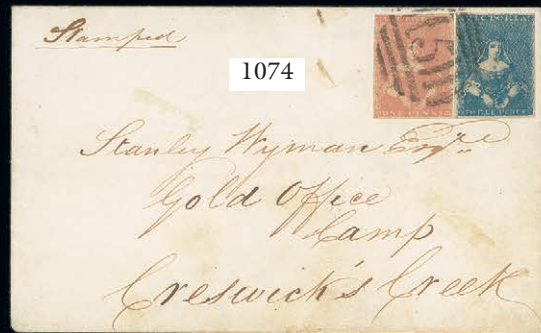 Stamped
VICTORIA
1074
ONE PENNY
Stanley Wyman Esqre
Gold Office
Camp
Creswick's Creek